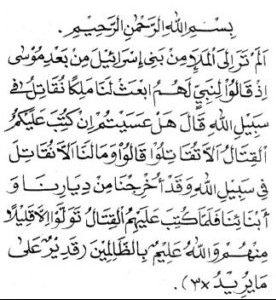 بِسْمِ اللهِ الرَّحْمٰنِ الرَّحِيْمِ
اَلَمْ تَرَ اِلَى الْمَلَإِ مِنْ بَنِى اِسْرَائِيْلَ مِنْ بَعْدِ مُوْسٰى
اِذْ قَالُوْا لِنَبِيٍّ لَهُمُ ابْعَثْ لَنَا مَلِكًا نُقَاتِلْ فِى
سَبِيْلِ اللهِ قَالَ هَلْ عَسَيْتُمْ اِنْ كُتِبَ عَلَيْكُمُ
الْقِتَالُ اَلَّا تُقَاتِلُوْا قَالُوْا وَمَالَنَا اَلَّا نُقَاتِلَ
فِى سَبِيْلِ اللهِ وَقَدْ اُخْرِجْنَا مِنْ دِيَارِنَا وَ
اَبْنَائِنَا فَلَمَّا كُتِبَ عَلَيْهِمُ الْقِتَالُ تَوَلَّوْا اِلَّا قَلِيْلًا
مِنْهُمْ وَاللهُ عَلِيْمٌ بِالظَّالِمِيْنَ رَقَدِيْرٌ عَلٰى
مَا يُرِيْدُ ×٣).